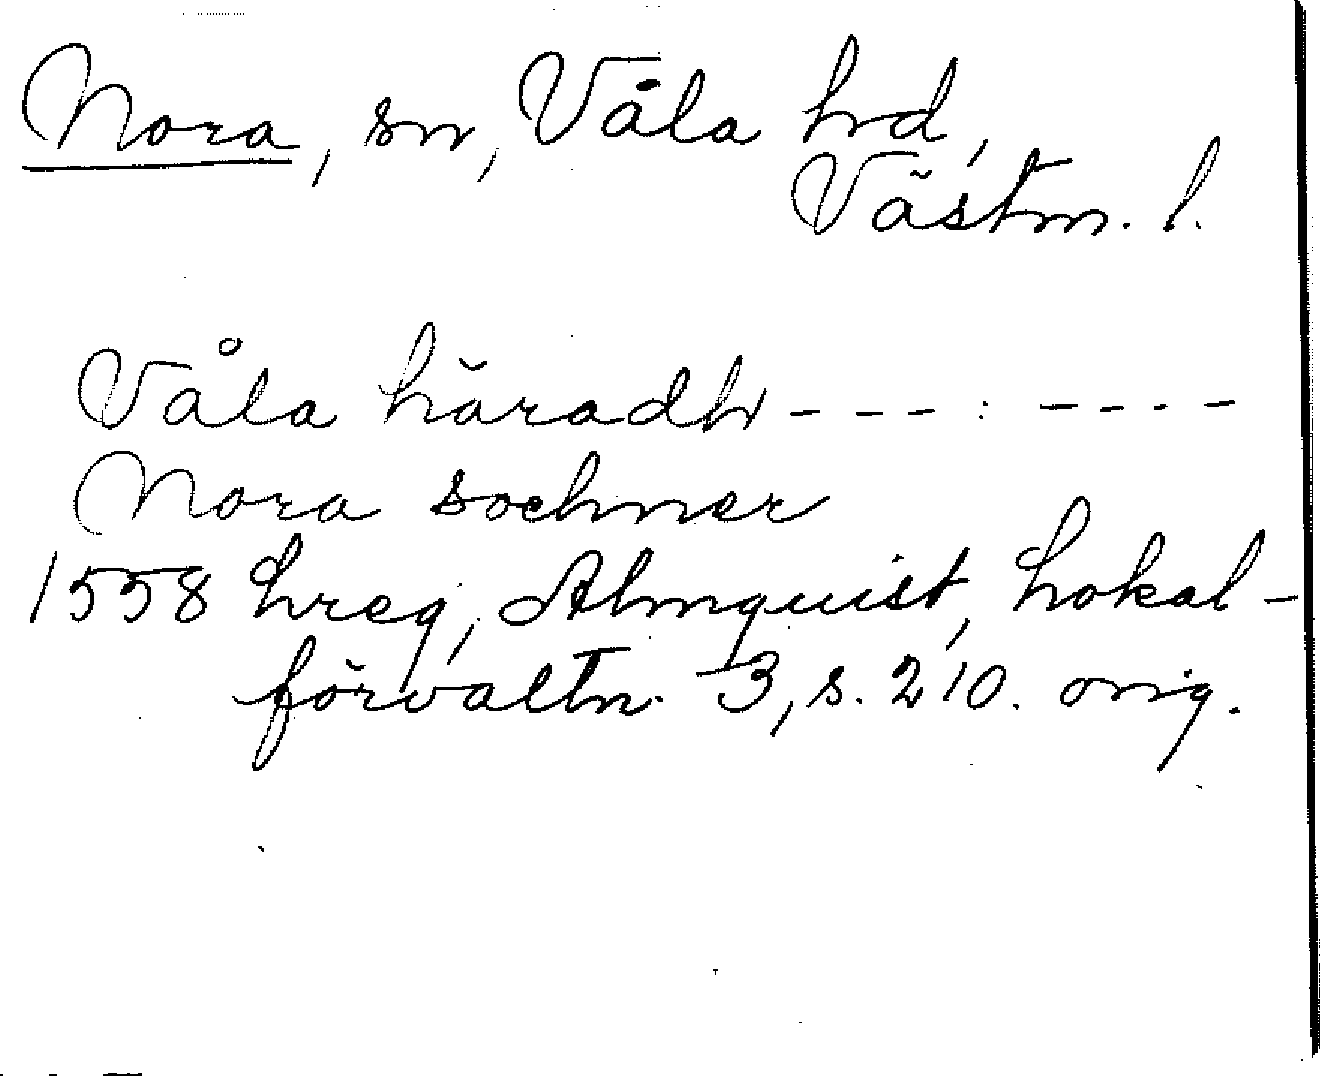 Nora, sn, Våla hrd,
Västm. l.
Våla häradh - - - : - - - -
Nora sochner
1558 hreg, Almquist, Lokal-
förvaltn. 3, s. 210. orig.